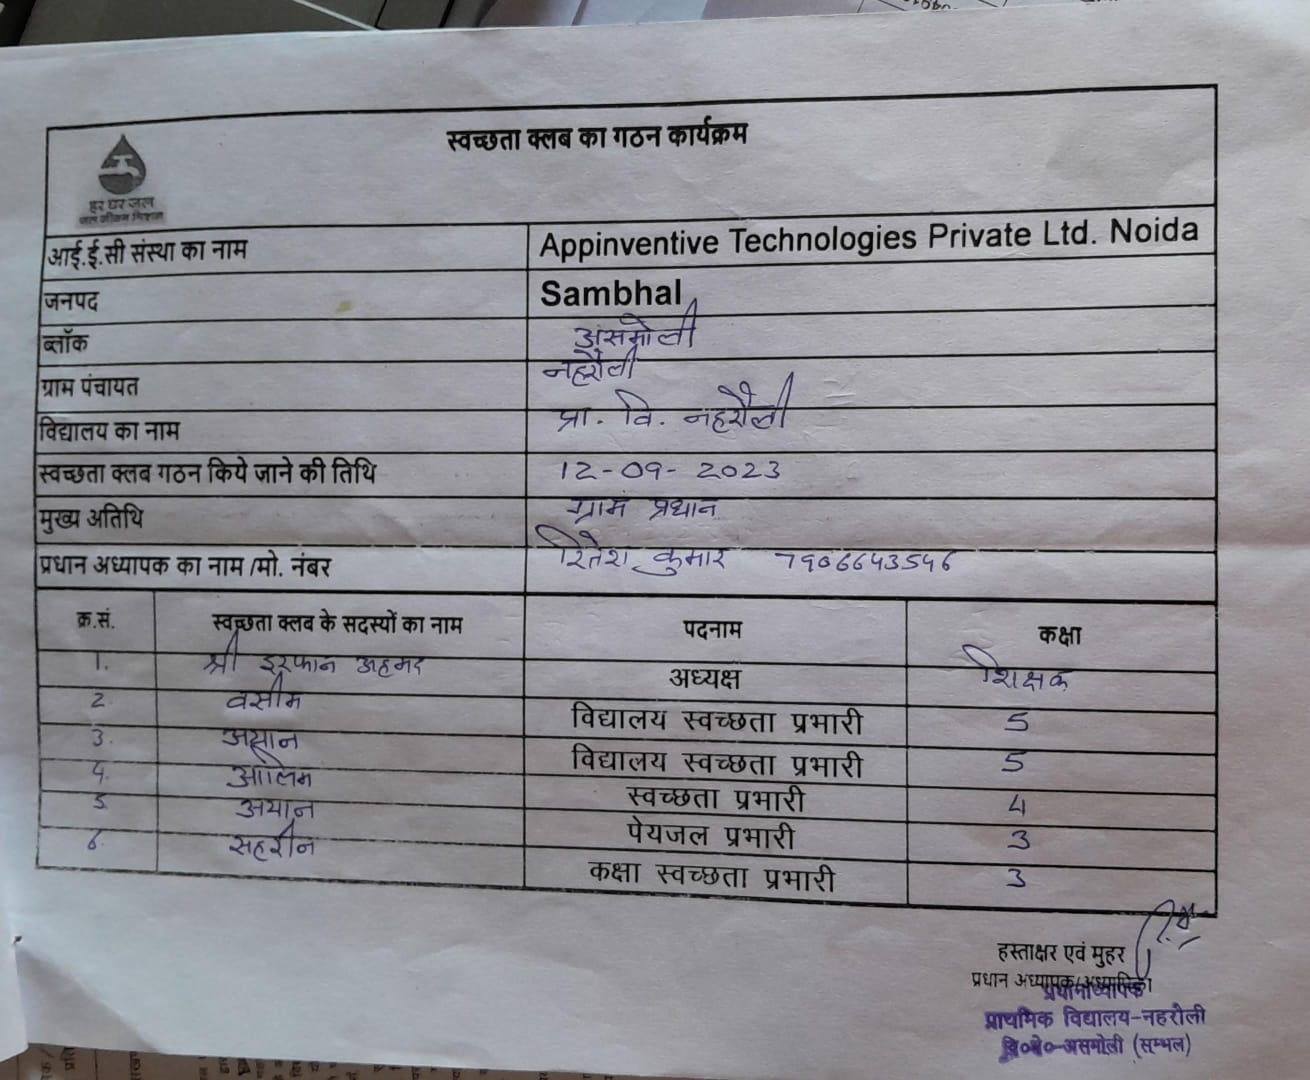 स्वच्छता क्लब का गठन कार्यक्रम
हर घर जल
जल जीवन मिशन
आई.ई.सी संस्था का नाम Appinventive Technologies Private Ltd. Noida
जनपद Sambhal
ब्लॉक असमोली
ग्राम पंचायत नहरौली
विद्यालय का नाम प्रा. वि. नहरौली
स्वच्छता क्लब गठन किये जाने की तिथि 12-09-2023
मुख्य अतिथि ग्राम प्रधान
प्रधान अध्यापक का नाम /मो. नंबर रितेश कुमार 7906643546
क्र.सं. स्वच्छता क्लब के सदस्यों का नाम पदनाम कक्षा
1. श्री इरफान अहमद अध्यक्ष शिक्षक
2. वसीम विद्यालय स्वच्छता प्रभारी 5
3. अमान विद्यालय स्वच्छता प्रभारी 5
4. आलिम स्वच्छता प्रभारी 4
5. अयान पेयजल प्रभारी 3
6. सहरीन कक्षा स्वच्छता प्रभारी 3
हस्ताक्षर एवं मुहर
प्रधान अध्यापक/अध्यापिका
प्रधानाध्यापक
प्राथमिक विद्यालय-नहरौली
असमोली (सम्भल)